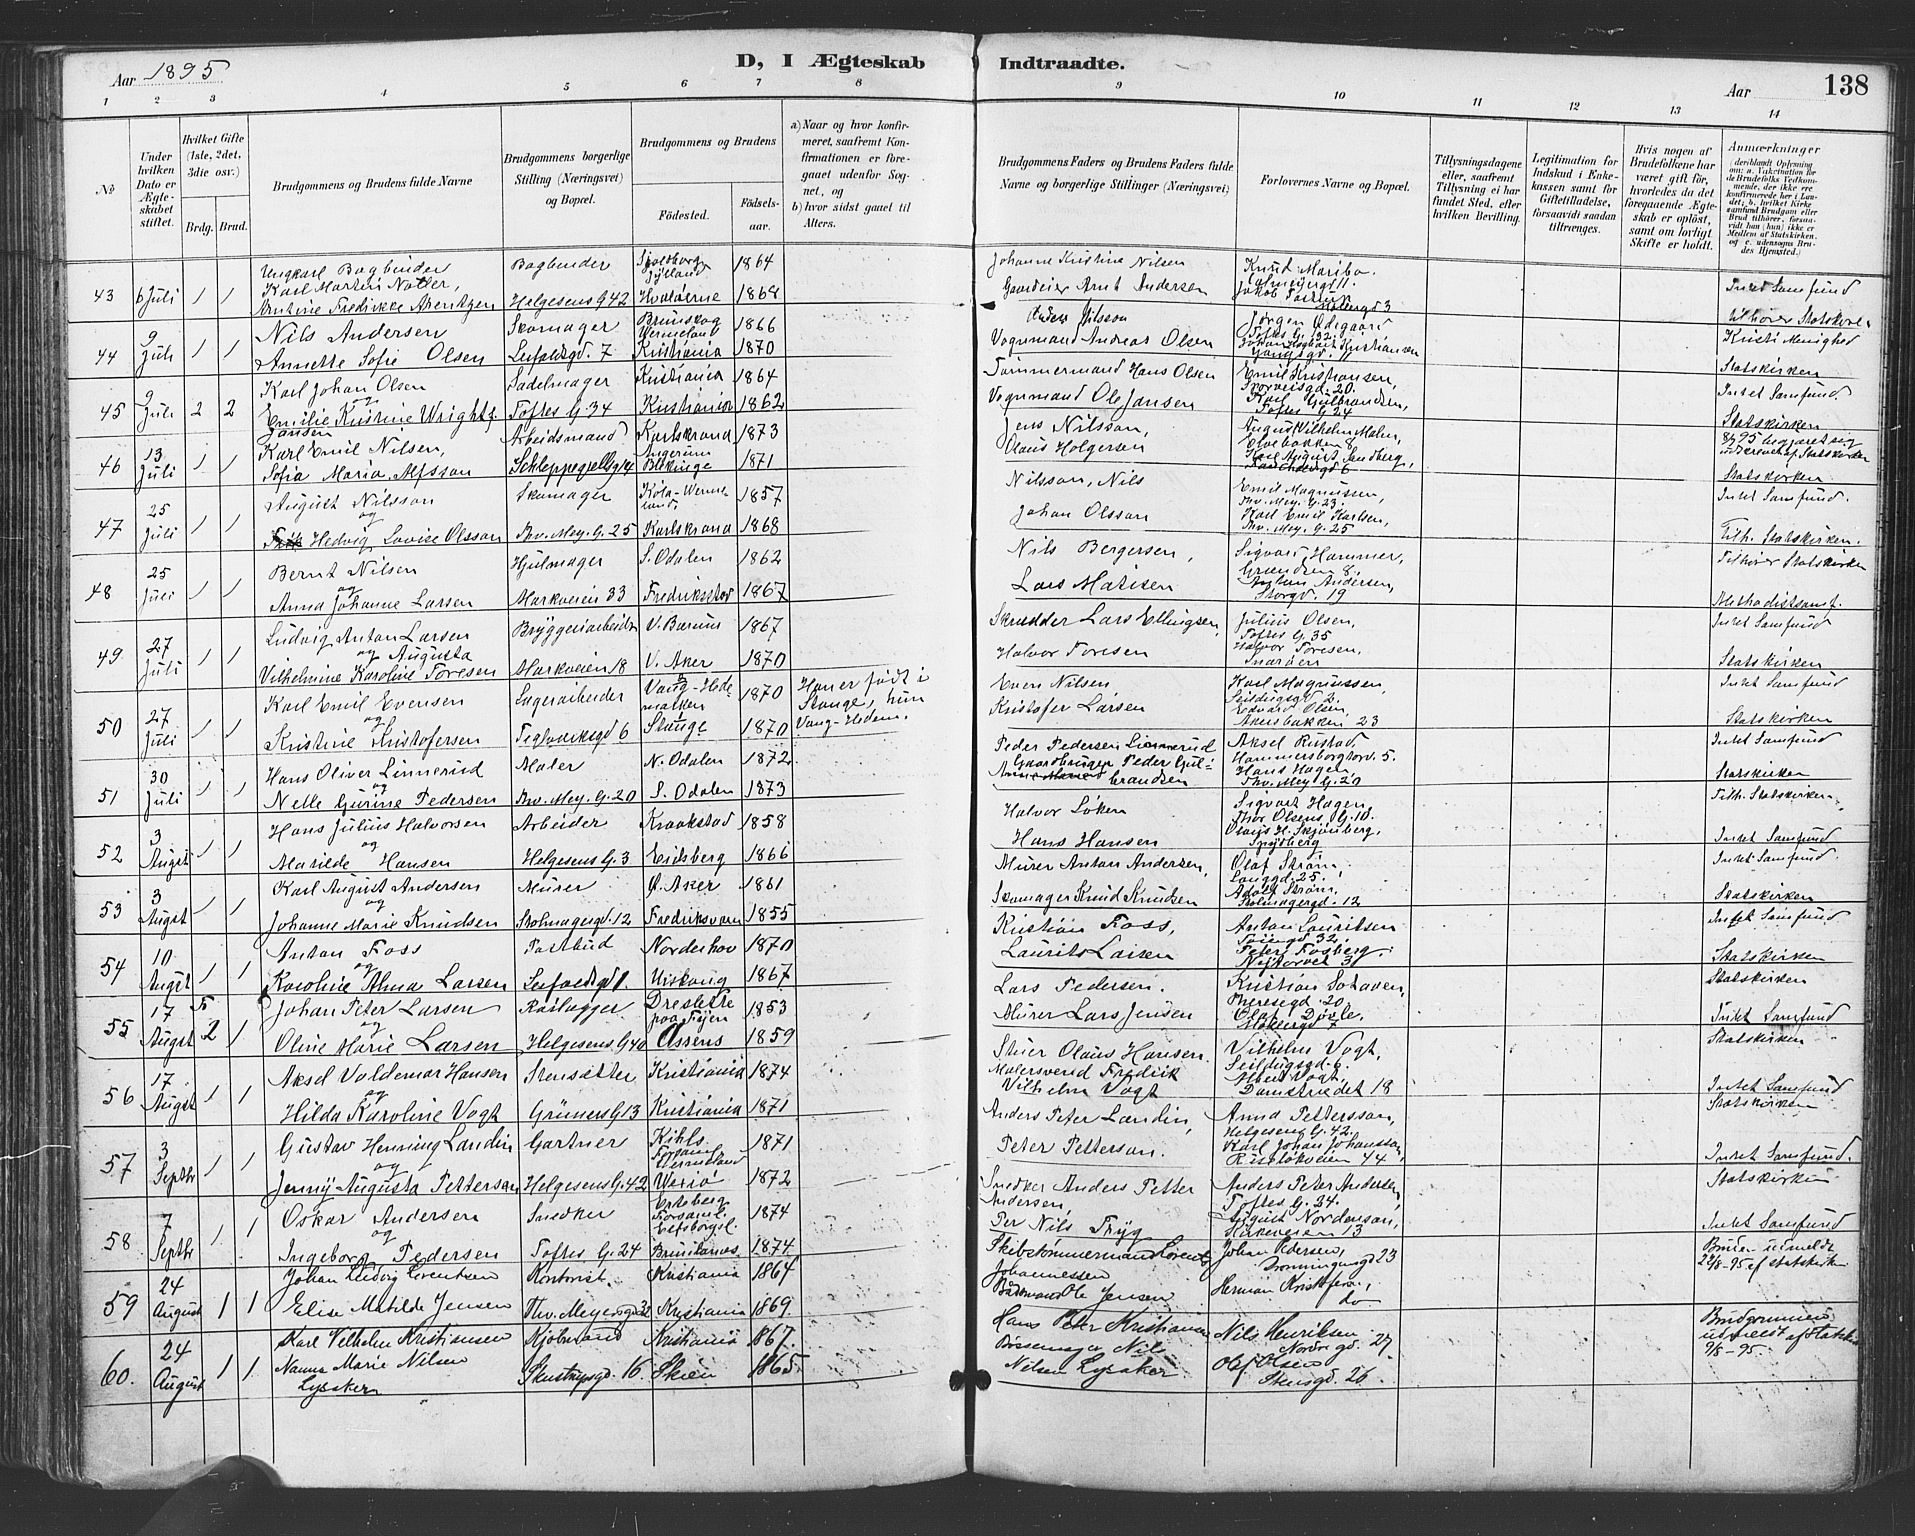 Aar 1895
D, I Ægteskab Indtraadte.
Aar
138
1 2 3 4 5 6 7 8 9 10 11 12 13 14
No
Under hvilken Dato er Ægteskabet stiftet.
Hvilket Gifte (1ste, 2det, 3die osv.)
Brdg. Brud.
Brudgommens og Brudens fulde Navne
Brudgommens borgerlige Stilling (Næringsvei) og Bopæl.
Brudgommens og Brudens
Fødested.
Fødselsaar.
a) Naar og hvor konfirmeret, saafremt Konfirmationen er foregaaet udenfor Sognet, og
b) hvor sidst gaaet til Alters.
Brudgommens Faders og Brudens Faders fulde Navne og borgerlige Stillinger (Næringsvei)
Forlovernes Navne og Bopæl.
Tillysningsdagene eller, saafremt Tillysning ei har fundet Sted, efter hvilken Bevilling.
Legitimation for Indskud i Enkekassen samt for Giftetilladelse, forsaavidt saadan tiltrænges.
Hvis nogen af Brudefolkene har været gift før, hvorledes da det foregaaende Ægteskab er opløst, samt om lovligt Skifte er holdt.
Anmærkninger
43 6 Juli 1 1
Ungkarl Bogbinder
Karl Martin
Antine Fredrikke Arentzen
Bogbinder
Helgesens G 42
Jylland 1864
Hvaløerne 1868
Johanne Kristine Nilsen
Gaardeier Arnt Andersen
Knud Maribo
Intet Samfund
tilhører Statskirken
44 9 Juli 1 1
Nils Andersen
Annette Sofie Olsen
Skomager
Leifaldsgd. 7
Brunskog Wermeland 1866
Kristiania 1870
Anders Nilsson
Vognmand Andreas Olsen
Jørgen Ødegaard
Toftes G. 32.
Kristi Menighed
Statskirken
45 9 Juli 2 2
Karl Johan Olsen
og
Emilie Kristine Wright f. Jansen
Sadelmager
Toftes G. 34
Kristiania 1864
Kristiania 1862
Tømmermand Hans Olsen
Vognmand Ole Jansen
Emil Kristiansen,
Karl Gulbrandsen,
Toftes G. 24
Intet Samfund
Statskirken
46 13 Juli 1 1
Karl Emil Nilsen,
Sofia Maria Alfsson
Arbeidsmand
Schleppegrellsg 14
Karlskrona 1873
Blekinge 1871
Jens Nilsson,
Olaus Holgersen
August Vilhelm Malm,
Karl August Sandberg,
Statskirken
47 25 Juli 1 1
August Nilsson
og
Hedvig Lovise Olsson
Skomager
Thv. Mey. G. 25
Køla-Wermeland. 1857
Karlskrona 1868
Nilsson, Nils
Johan Olsson
Emil Magnussen,
Thv. Mey. G. 23,
Karl Emil Karlsen,
Thv. Mey. G. 25
Intet Samfund.
Tilh. Statskirken.
48 25 Juli 1 1
Bernt Nilsen
og
Anna Johanne Larsen
Hjulmager
Markveien 33
S. Odalen 1862
Fredriksstad 1867
Nils Bergersen,
Lars Matisen
Sigvart Hammer,
Anton Andersen,
Storgd. 19
Tilhører Statskirken
Methodistsamf.
49. 27 Juli 1 1
Ludvig Anton Larsen
og Augusta
Vilhelmine Karoline Toresen
Bryggeriarbeider
Markveien 18
V. Bærum 1867
V. Aker 1870
Skrædder Lars Ellingsen,
Halvor Toresen
Julius Olsen,
Toftes G. 35
Halvor Toresen,
Snarøen
Intet Samfund
Statskirken
50 27 Juli 1 1
Karl Emil Evensen
og
Kristine Kristofersen
Lagerarbeider
Teglverksgd 6
Vang-Hedemarken 1870
Stange 1870
Han er født i Stange, hun Vang-Hedem.
Even Nilsen
Kristofer Larsen
Karl Magnussen,
Seildugsgd 2.
Edvard Olsen,
Akersbakken 23
Intet Samfund
Statskirken
51 30 Juli 1 1
Hans Oliver Linnerud
og
Nelle Gurine Pedersen
Maler
Thv. Mey. G. 20
N. Odalen 1872
S. Odalen 1873
Peder Pedersen Linnerud
Gaardbruger Peder Gulbrandsen
Aksel Rustad,
Hammersborgtorv. 5.
Hans Hagen
Thv. Mey G. 20
Intet Samfund
Statskirken
52 3 Augst 1 1
Hans Julius Halvorsen
og
Matilde Hansen
Arbeider
Helgesens G. 3
Kraakstad 1858
Eidsberg 1866
Halvor Løken
Hans Hansen
Sigvart Hagen,
Thor Olsens G. 10.
Olaus H. Skjønberg,
Spydberg
Tilh. Statskirken
Intet Samfund
53 3 Augst 1 1
Karl August Andersen
og
Johanne Marie Knudsen
Murer
Stolmagergd. 12
Ø. Aker 1861
Fredriksværn 1855
Murer Anton Andersen,
Skomager Knud Knudsen
Olaf Strøm,
Langgd. 25.
Adolf Strøm,
Stolmagergd. 12
Intet Samfund
Statskirken
54 10 Augst 1 1
Anton Foss
og
Karoline Alma Larsen
Postbud
Leifaldsgd 1.
Norderhov 1870
Urskoug 1867
Kristian Foss,
Laurits Larsen
Anton Lauritsen
Tøiengd 32.
Peter Fosberg
Nytorvet 3
Intet Samfund
Statskirken
55 17 Augst 2 1
Johan Peter Larsen
og
Oline Marie Larsen
Rørlægger
Helgesens G 40
paa Fyen 1853
Assens 1859
Lars Pedersen.
Murer Lars Jensen
Kristian
Theresegd. 20
Statskirken
Intet Samfund
56 17 Augst 1 1
Aksel Valdemar Hansen
og
Hilda Karoline Vogt
Stensætter
Grüners G 13
Kristiania 1874
Kristiania 1871
Stuer Olaus Hansen.
Malersvend Fredrik Vilhelm Vogt
Vilhelm Vogt,
Seildugsgd. 6.
Albert Vogt,
Damstrædet 18
Statskirken
Intet Samfund
57 3 Septbr 1 1
Gustav Henning Landin
og
Jenny Augusta Pettersson
Gartner
Helgesens G. 42
Kihls Forsaml Wermeland 1871
Wexiø 1872
Anders Peter Landin,
Peter Petterson.
Anna Pettersson,
Helgesens G. 42.
Karl Johan Johansson,
Rustsløkveien 44
Statskirken
Intet Samfund.
58 7 Septbr 1 1
Oskar Andersen
og
Ingeborg Pedersen
Snedker
Toftes G. 24
Forsaml. Elfsborgsl. 1874
1874
Snedker Anders Petter Andersen,
Per Nils Tryg
Anders Peter Andersen,
Toftes G. 24.
August Nordenson,
Kirkeveien 13
Statskirken
Intet Samfund
59 24 August 1 1
Johan Ludvig Lorentsen
Elise Matilde Jensen
Kontorist.
Thv. Meyersgd 32
Kristiania 1864
Kristiania 1869.
Skibstømmermand Lorents Johannessen
Baadsmand Ole Jensen
Johan Pedersen,
Dronningensgd 23
Herman Kristofersen,
do
Bruden udmeldt
22/8-95 af Statskirken
60. 24 August 1 1
Karl Vilhelm Kristiansen
Nanna Marie Nilsen
Lysaker
Kjøbmand
Skustrupsgd. 16
Kristiania 1867.
Skien 1865.
Hans Peter Kristiansen
Bøssemager Nil
Nilsen Lysaker
Nils Henriksen
Nordregd. 27
Olof Olsen
Stensgd. 26
Brudgommen
udmeldt af Statskirken
9/8-95.